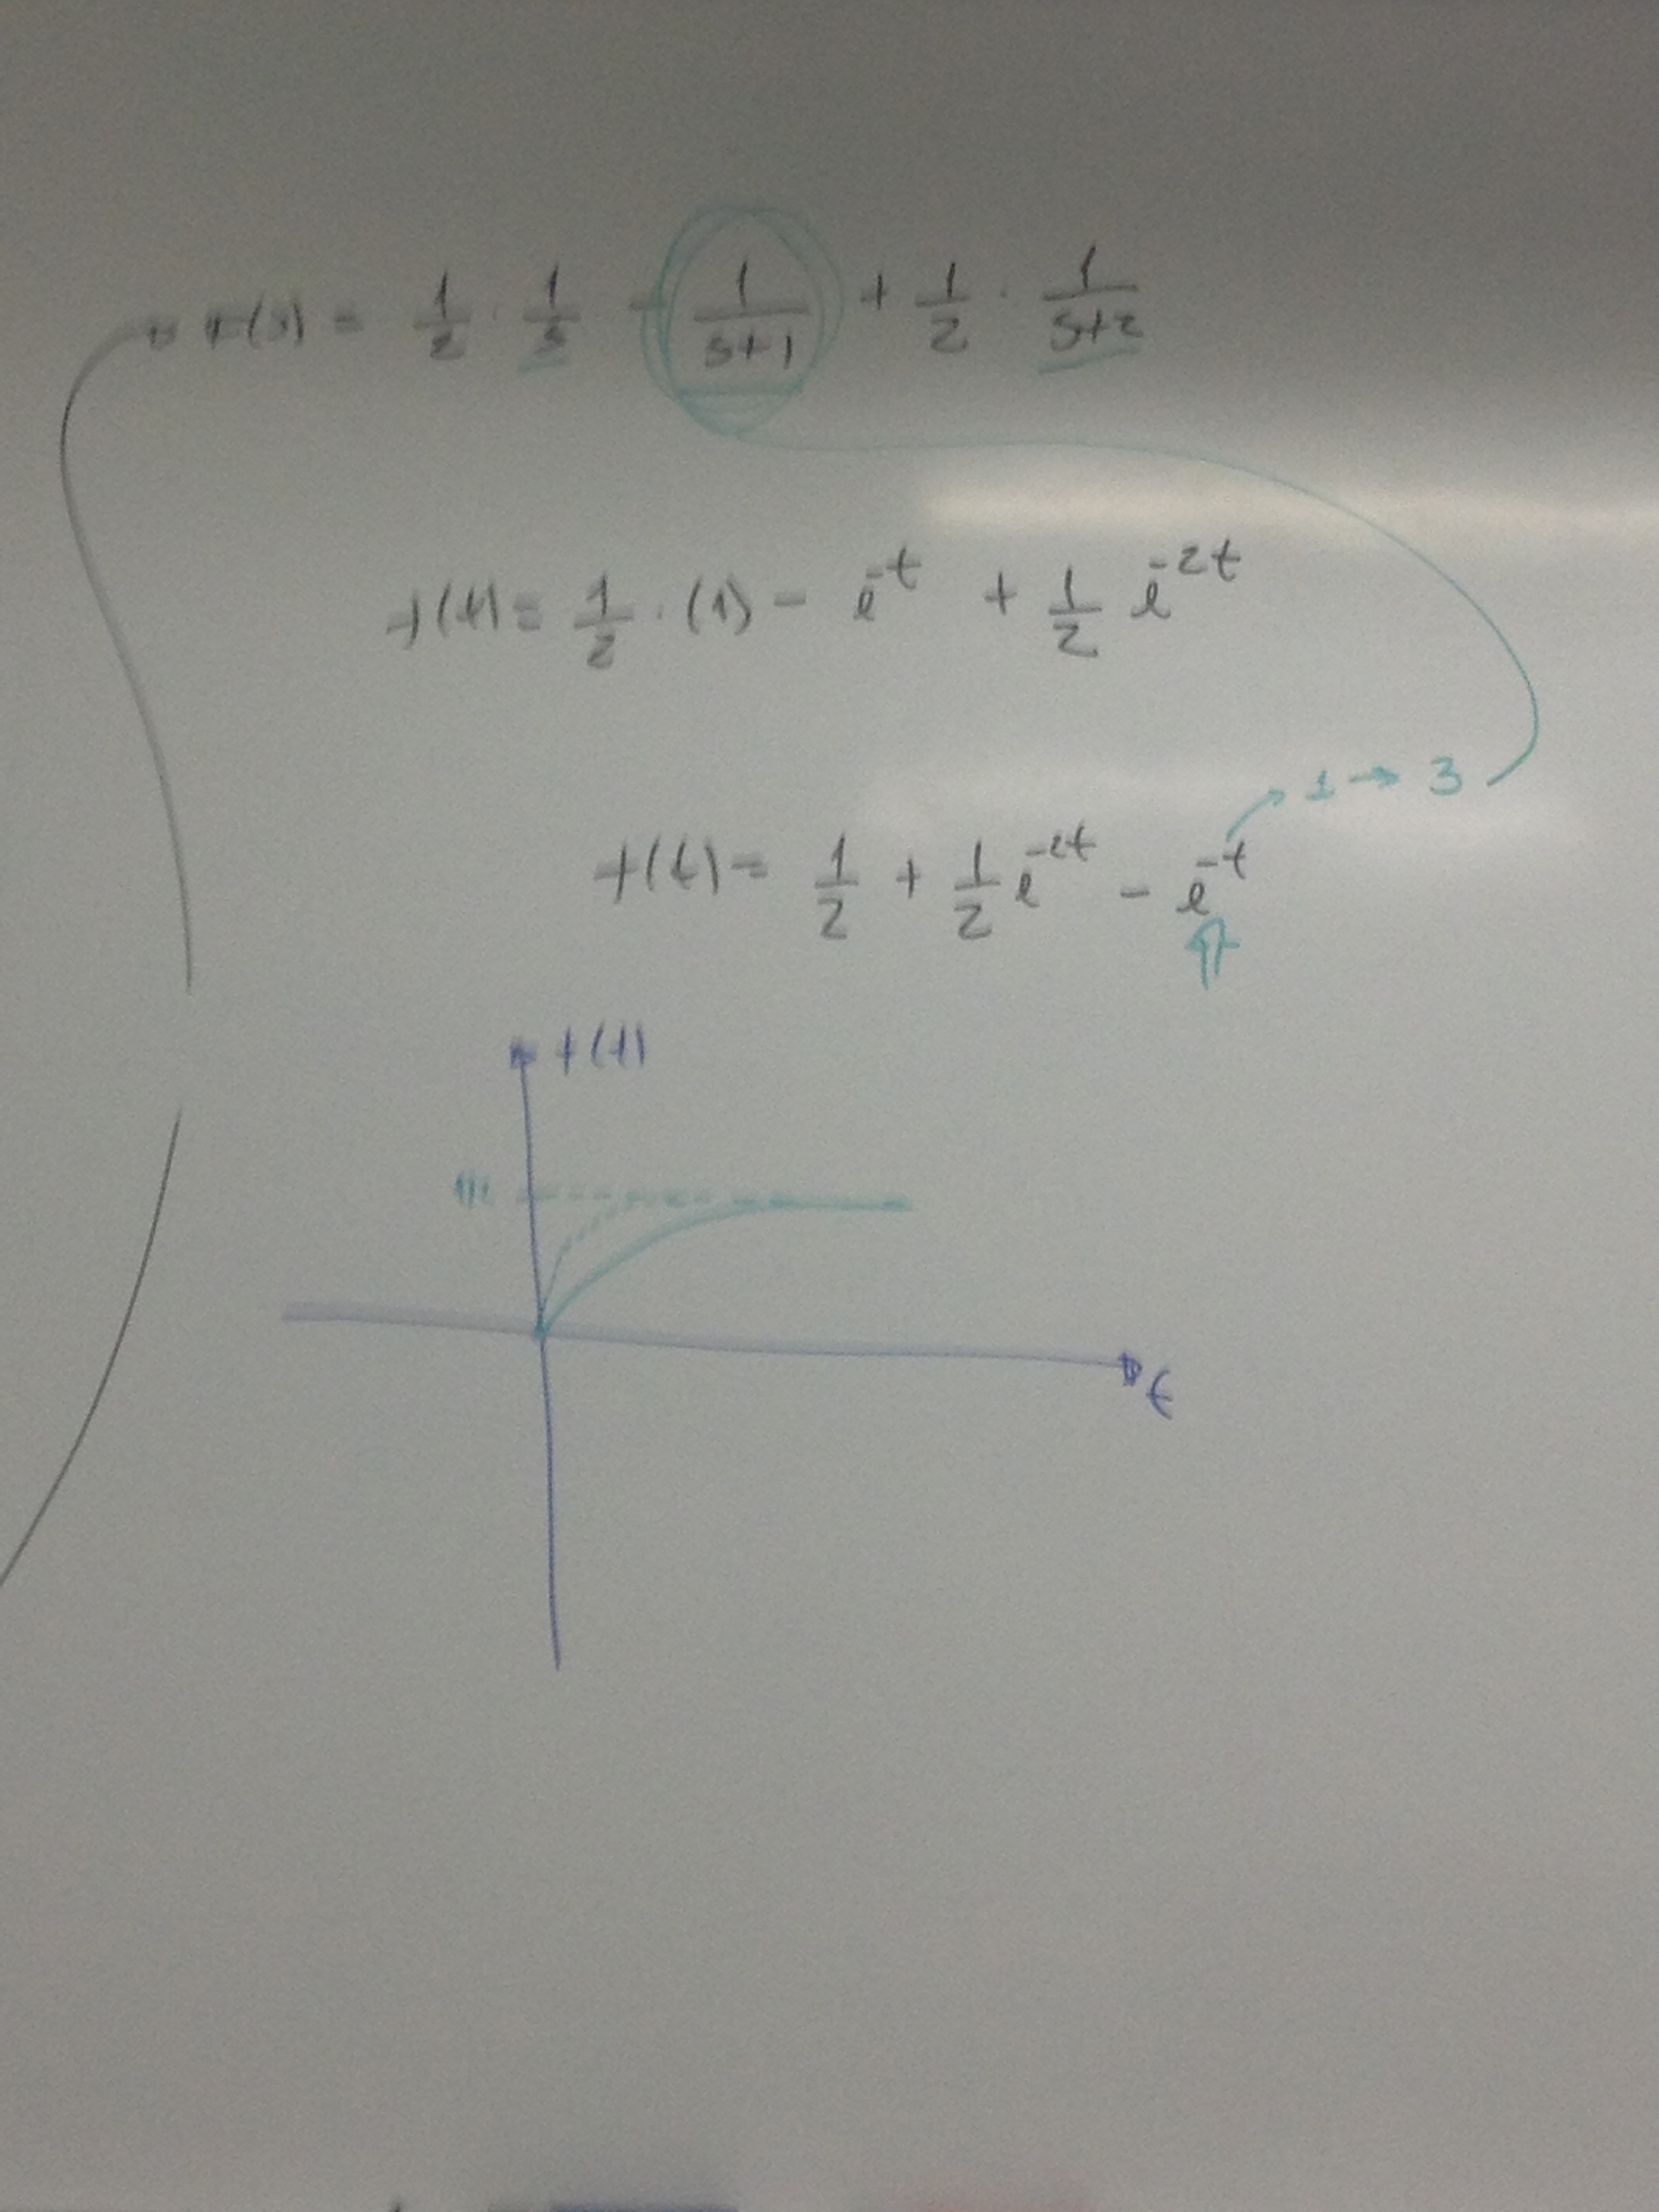 F(s) = 1/2 · 1/s - 1/(s+1) + 1/2 · 1/(s+2)
f(t) = 1/2 · (1) - e^-t + 1/2 e^-2t
1 → 3
f(t) = 1/2 + 1/2 e^-2t - e^-t
f(t)
1/2
t